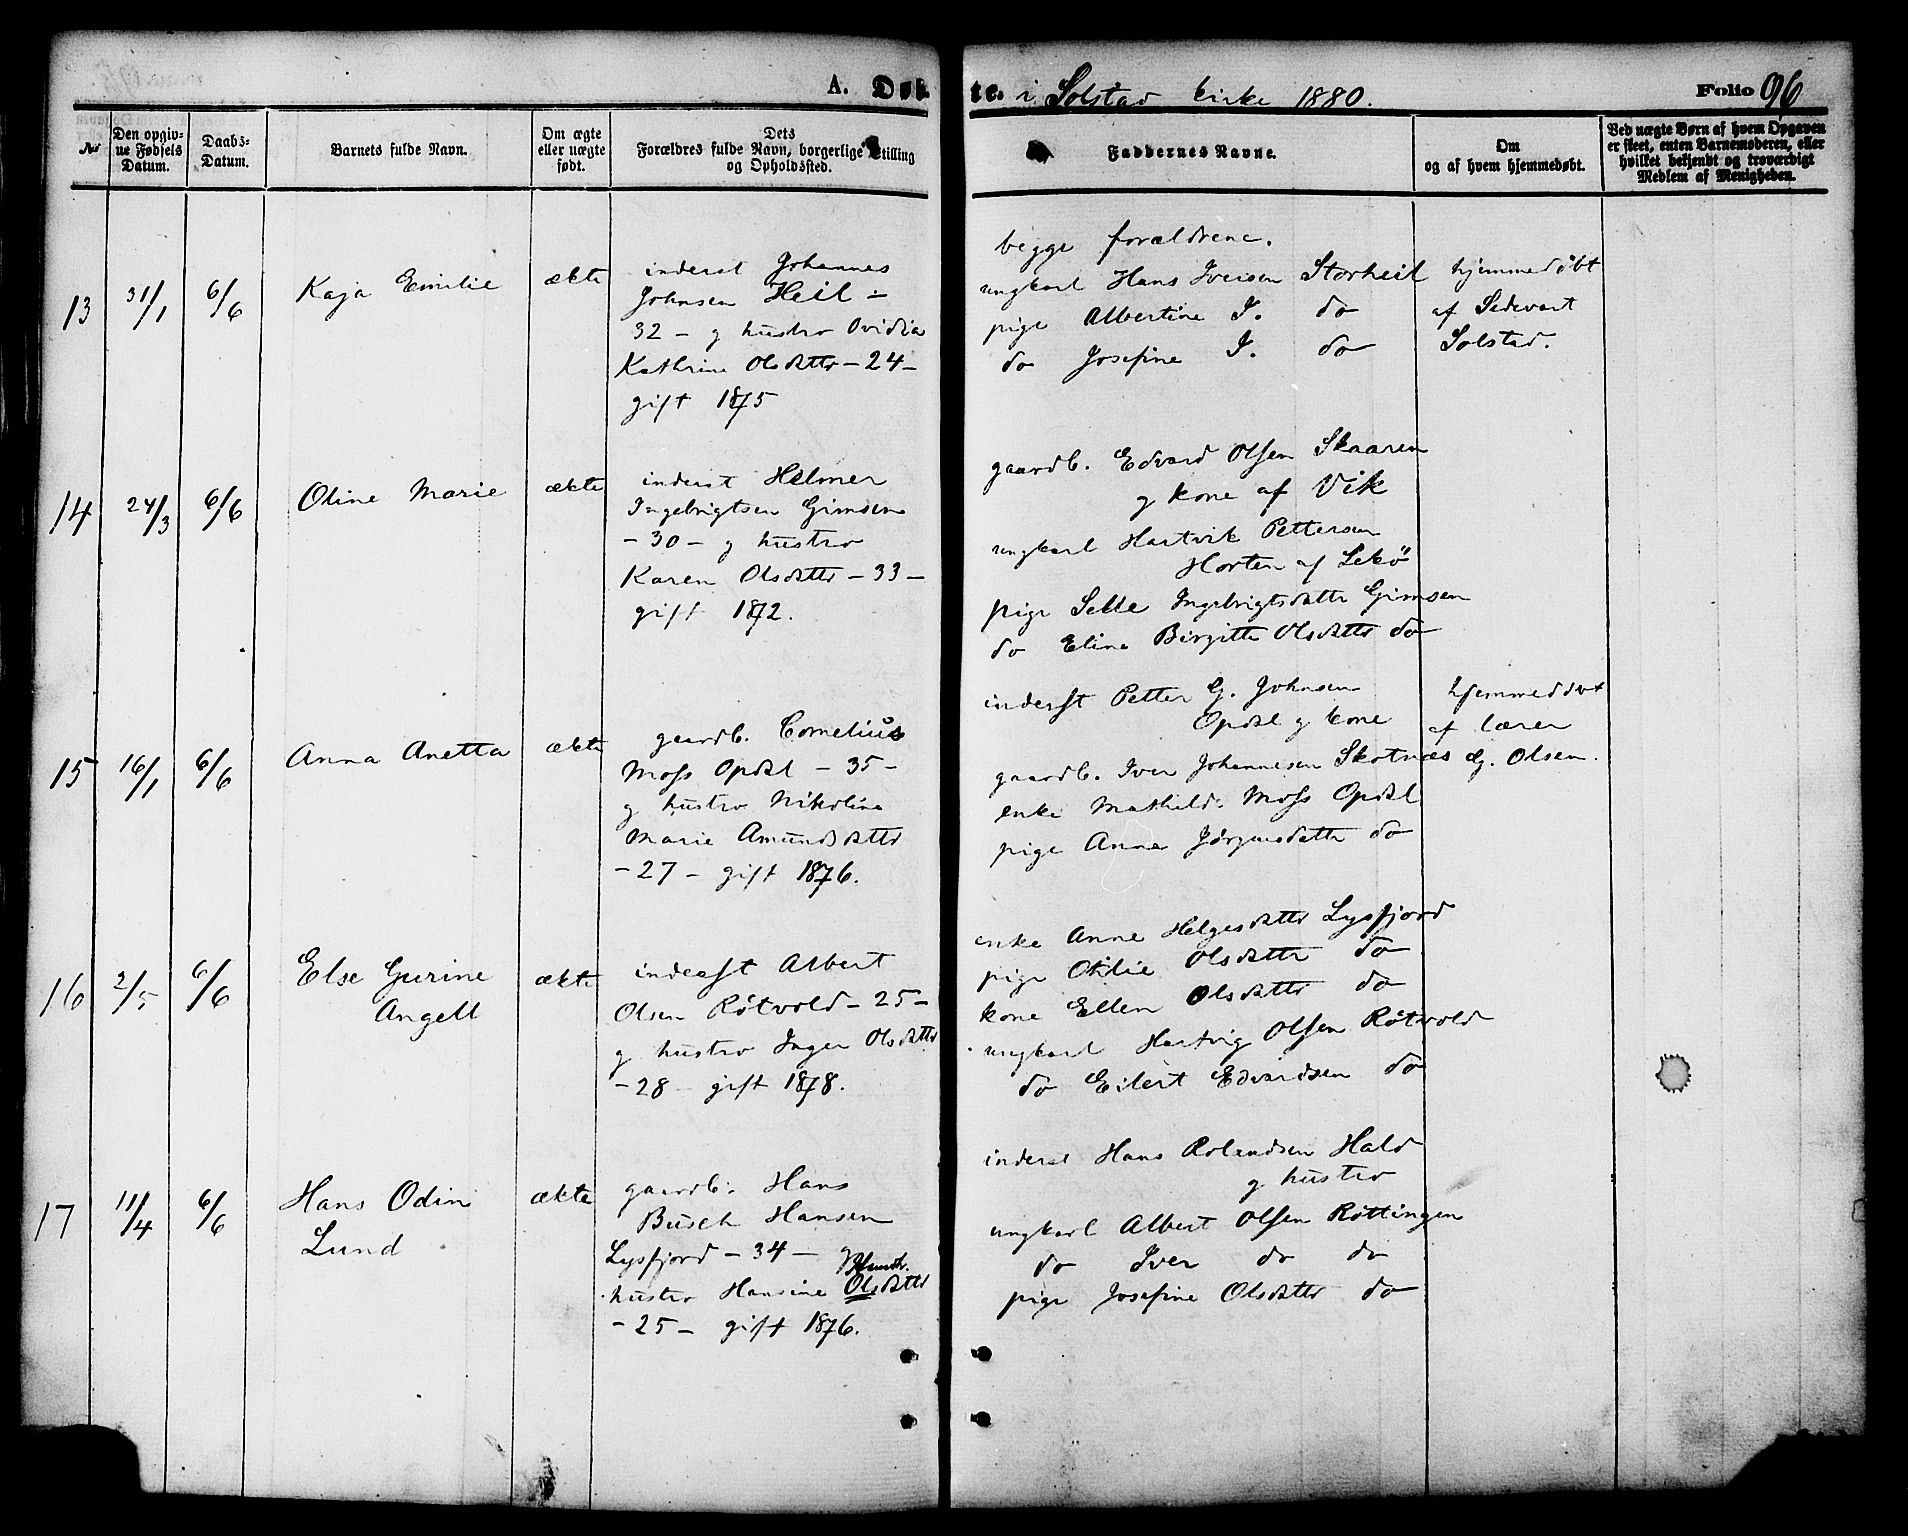 A. Døb
te. i Solstad kirke 1880.
Folio 96
No
Den opgiv-
ne Fødsels
Datum.
Daabs-
Datum.
Barnets fulde Navn.
Om ægte
eller uægte
født.
Dets
Forældres fulde Navn, borgerlige Stilling
og Opholdssted.
Faddernes Navne.
Om
og af hvem hjemmedøbt.
Ved uægte Børn af hvem Opgaven
er skeet, enten Barnemoderen, eller
hvilket bekjendt og troværdigt
Medlem af Menigheden.
13
31/1
6/6
Kaja Emilie
ækte
inderst Johannes
Johnsen Heil -
32 - g hustro Ovidia
Kathrine Olsdattr - 24 -
gift 1875
begge forældrene.
ungkarl Hans Iversen Storheil
pige Albertine I. do
do Josefine I. do
hjemmedøbt
af Sedevart
Solstad.
14
24/3
6/6
Oline Marie
ækte
inderst Helmer
Ingebrigtsen Gimsen
- 30 - g hustro
Karen Olsdattr - 33 -
gift 1872.
gaardb. Edvard Olsen Skaaren
g kone af Vik
ungkarl Hartvik Pettersen
Horten af Lekö
pige Ingebrigtsdattr Gimsen
do Eline Birgitte Olsdattr do
15
16/1
6/6
Anna Anetta
ækte
gaardb. Cornelius
Moss Opdal - 35 -
g hustro Nikoline
Marie Amundsdattr
- 27 - gift 1876.
inderst Petter G. Johnsen
Opdal g kone
gaardb. Iver Johannesen Skotnæs
enke Mathilde Moss Opdal
pige Anna Jörgensdattr do
hjemmedøbt
af lærer
G. Olsen.
16
2/5
6/6
Else Gurine
Angell
ækte
inderst Albert
Olsen Røtvold - 25 -
g hustro Inger Olsdattr
- 28 - gift 1878.
enke Anne Helgesdattr Lysfjord
pige Otilie Olsdattr do
kone Ellen Olsdattr do
ungkarl Hartvig Olsen Røtvold
do Eilert Edvardsen do
17
11/4
6/6
Hans Odin
Lund
ækte
gaardb. Hans
Busch Hansen
Lysfjord - 34 - g
hustro Hansine Olsdattr
- 25 - gift 1876.
inderst Hans Rolandsen Hald
g hustro
ungkarl Albert Olsen Røttingen
do Iver do do
pige Josefine Olsdattr do